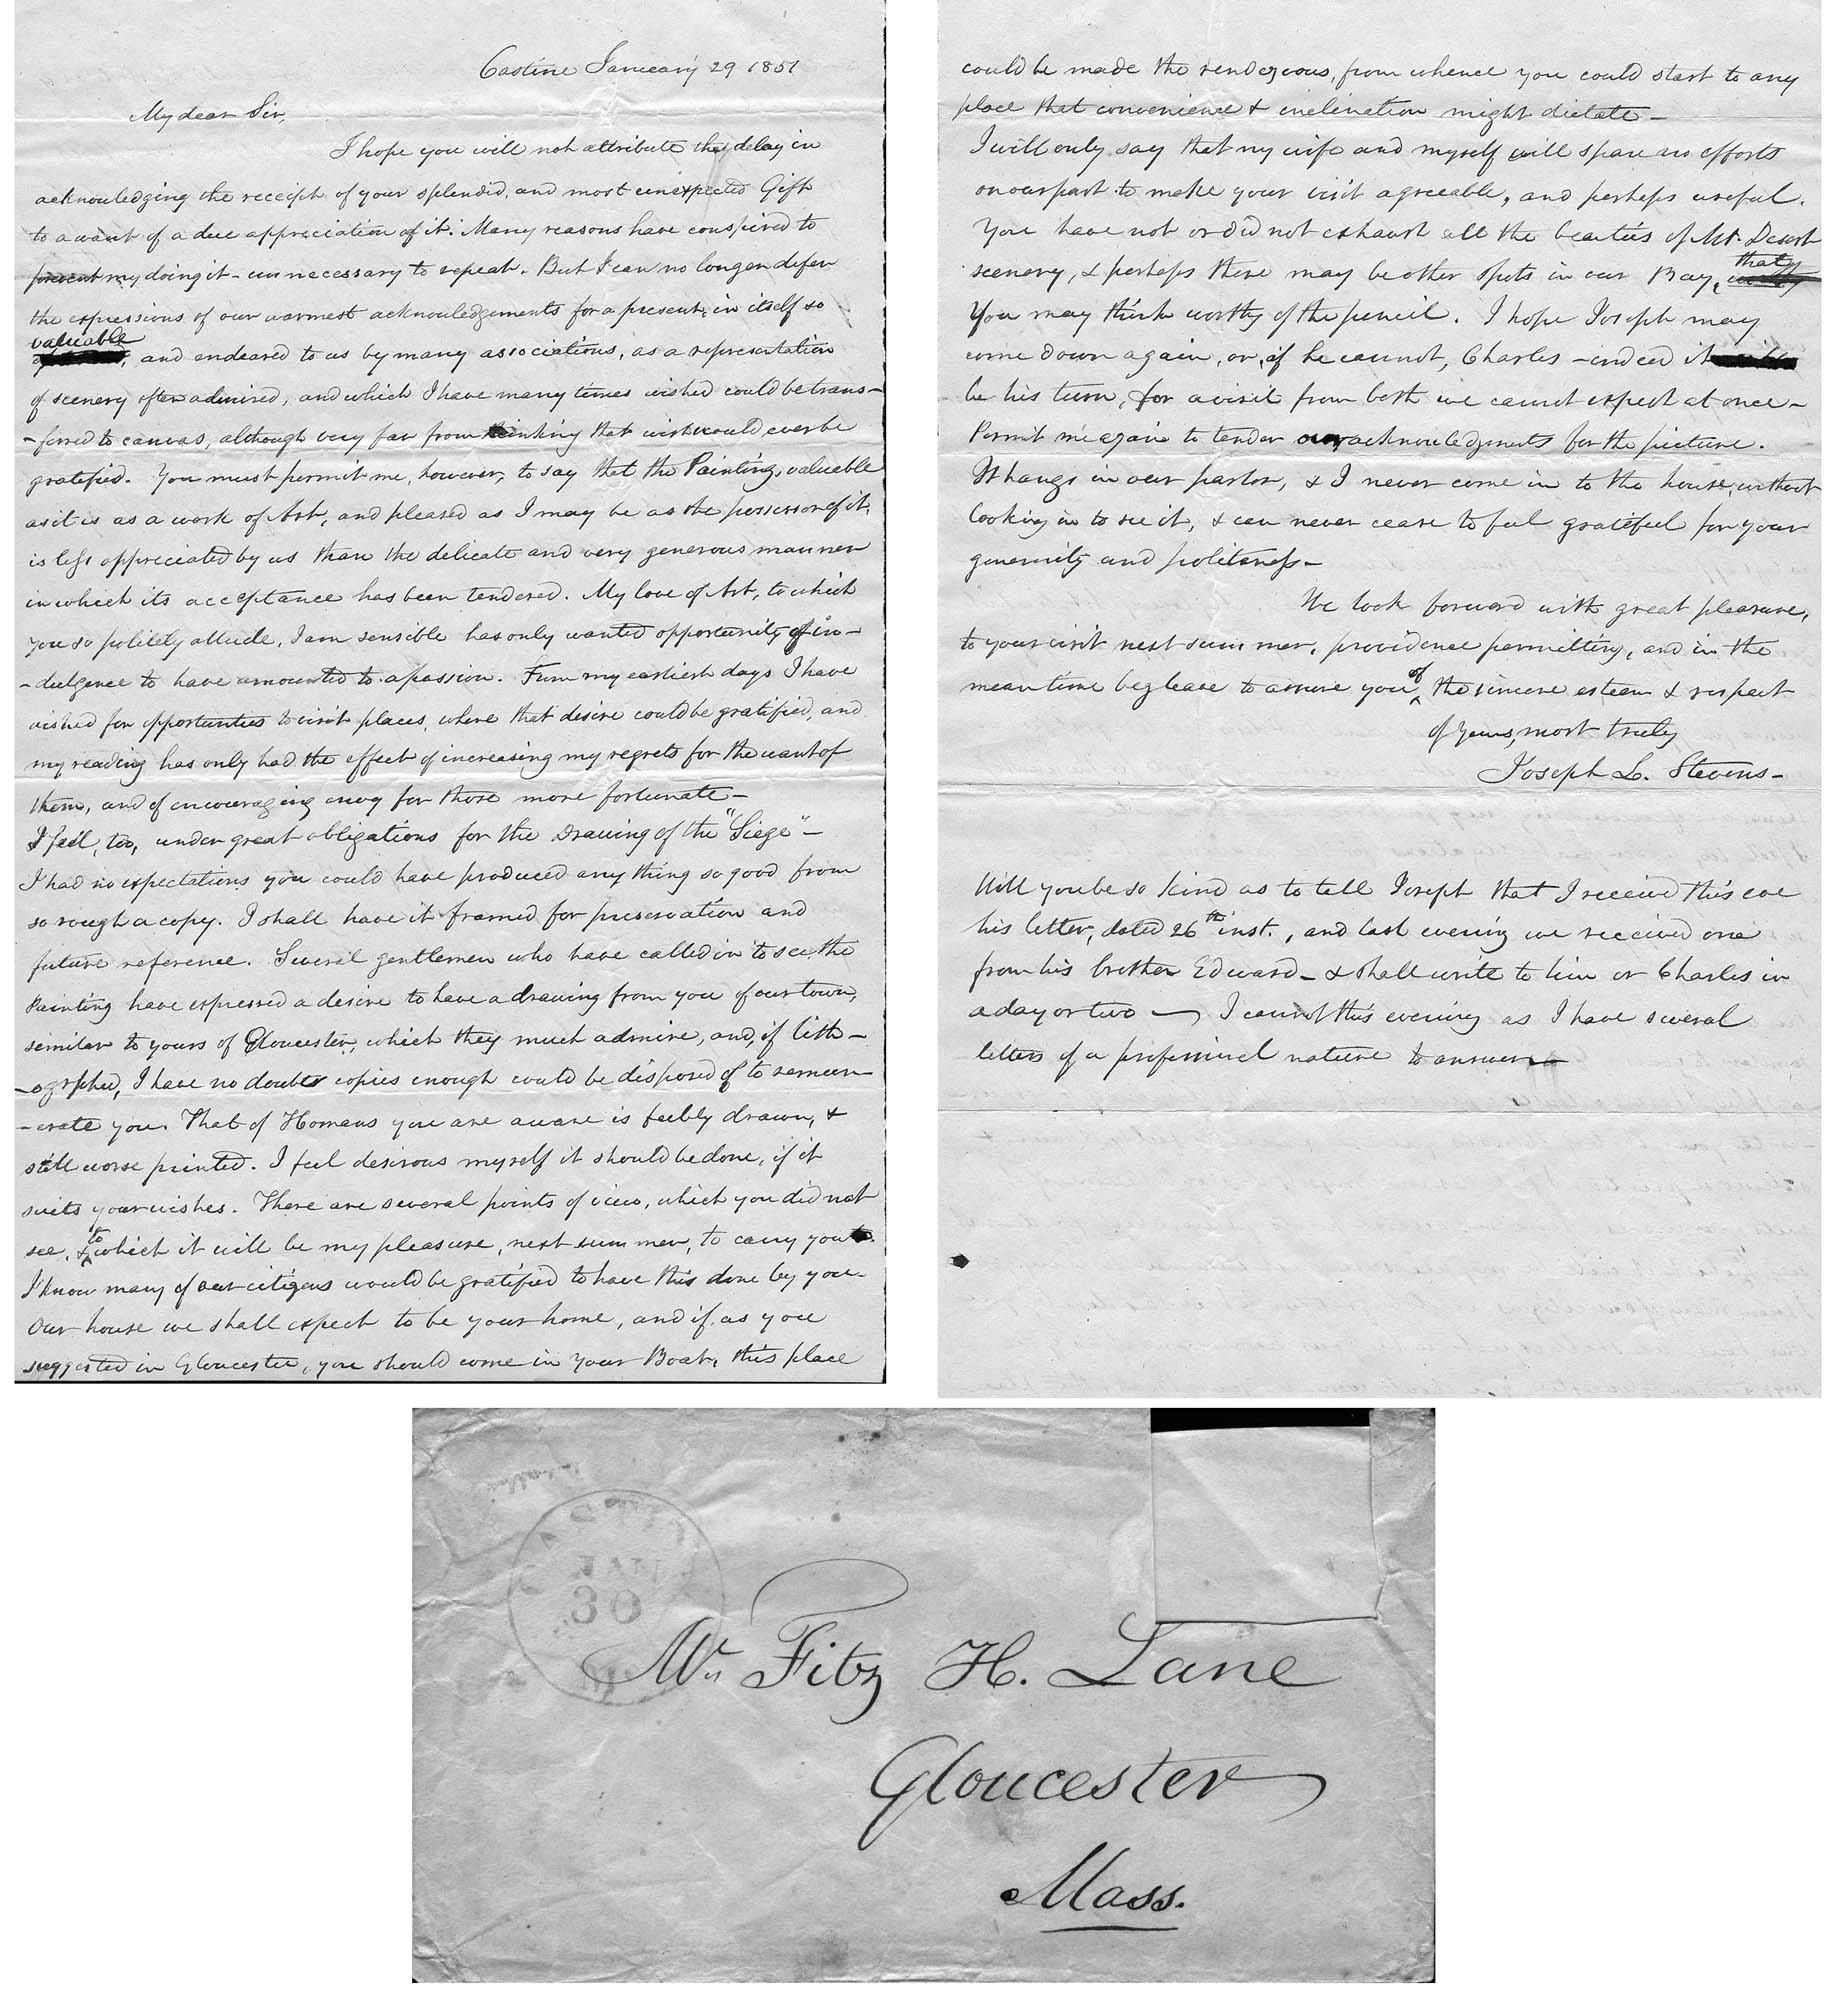 Castine January 29 1851
My dear Sir,
I hope you will not attribute the delay in
acknowledging the receipt of your splendid, and most unexpected Gift
to a want of a due appreciation of it. Many reasons have conspired to
prevent my doing it - unnecessary to repeat. But I can no longer defer
the expressions of our warmest acknowledgements for a present, in itself so
valuable
, and endeared to us by many associations, as a representation
of scenery often admired, and which I have many times wished could be trans-
-ferred to canvas, although very far from thinking that wish would ever be
gratified. You must permit me, however, to say that the Painting, valuable
as it is as a work of Art, and pleased as I may be as the possessor of it,
is less appreciated by us than the delicate and very generous manner
in which its acceptance has been tendered. My love of Art, to which
you so politely allude, I am sensible has only wanted opportunity of in-
-dulgence to have amounted to a passion. From my earliest days I have
wished for opportunties to visit places, where that desire could be gratified, and
my reading has only had the effect of increasing my regrets for the want of
them, and of encouraging envy for those more fortunate-
I feel, too, under great obligations for the Drawing of the "Siege"-
I had no expectations you could have produced any thing so good from
so rough a copy. I shall have it framed for preservation and
future reference. Several gentlemen who have called in to see the
Painting have expressed a desire to have a drawing from you of our town,
similar to yours of Gloucester, which they much admire, and, if lith-
-ographed, I have no doubt copies enough could be disposed of to remun-
-erate you. That of Homans you are aware is feebly drawn, &
still worse printed. I feel desirous myself it should be done, if it
suits your wishes. There are several points of view, which you did not
see, & to which it will be my pleasure, next summer, to carry you.
I know many of our citizens would be gratified to have this done by you-
Our house we shall expect to be your home, and if, as you
suggested in Gloucester, you should come in your Boat, this place
could be made the rendezvous, from whence you could start to any
place that convenience & inclination might dictate-
I will only say that my wife and myself will spare no efforts
on our part to make your visit agreeable, and perhaps useful.
You have not or did not exhaust all the beauties of Mt. Desert
scenery, & perhaps there may be other spots in our Bay, that
you may think worthy of the pencil. I hope Joseph may
come down again, or, if he cannot, Charles - indeed it
be his turn, for a visit from both we cannot expect at once-
Permit me again to tender our acknowledgments for the picture.
It hangs in our parlor, & I never come in to the house, without
looking in to see it, & can never cease to feel grateful for your
generosity and politeness-
We look forward with great pleasure,
to your visit next summer, providence permitting, and in the
mean time beg leave to assure you of the sincere esteem & respect
of yours, most truly
Joseph L. Stevens-
Will you be so kind as to tell Joseph that I received this eve
his letter, dated 26th inst., and last evening we received one
from his brother Edward- & shall write to him or Charles in
a day or two - I cannot this evening as I have several
letters of a professional nature to answer
JAN
30
Mr. Fitz H. Lane
Gloucester
Mass.